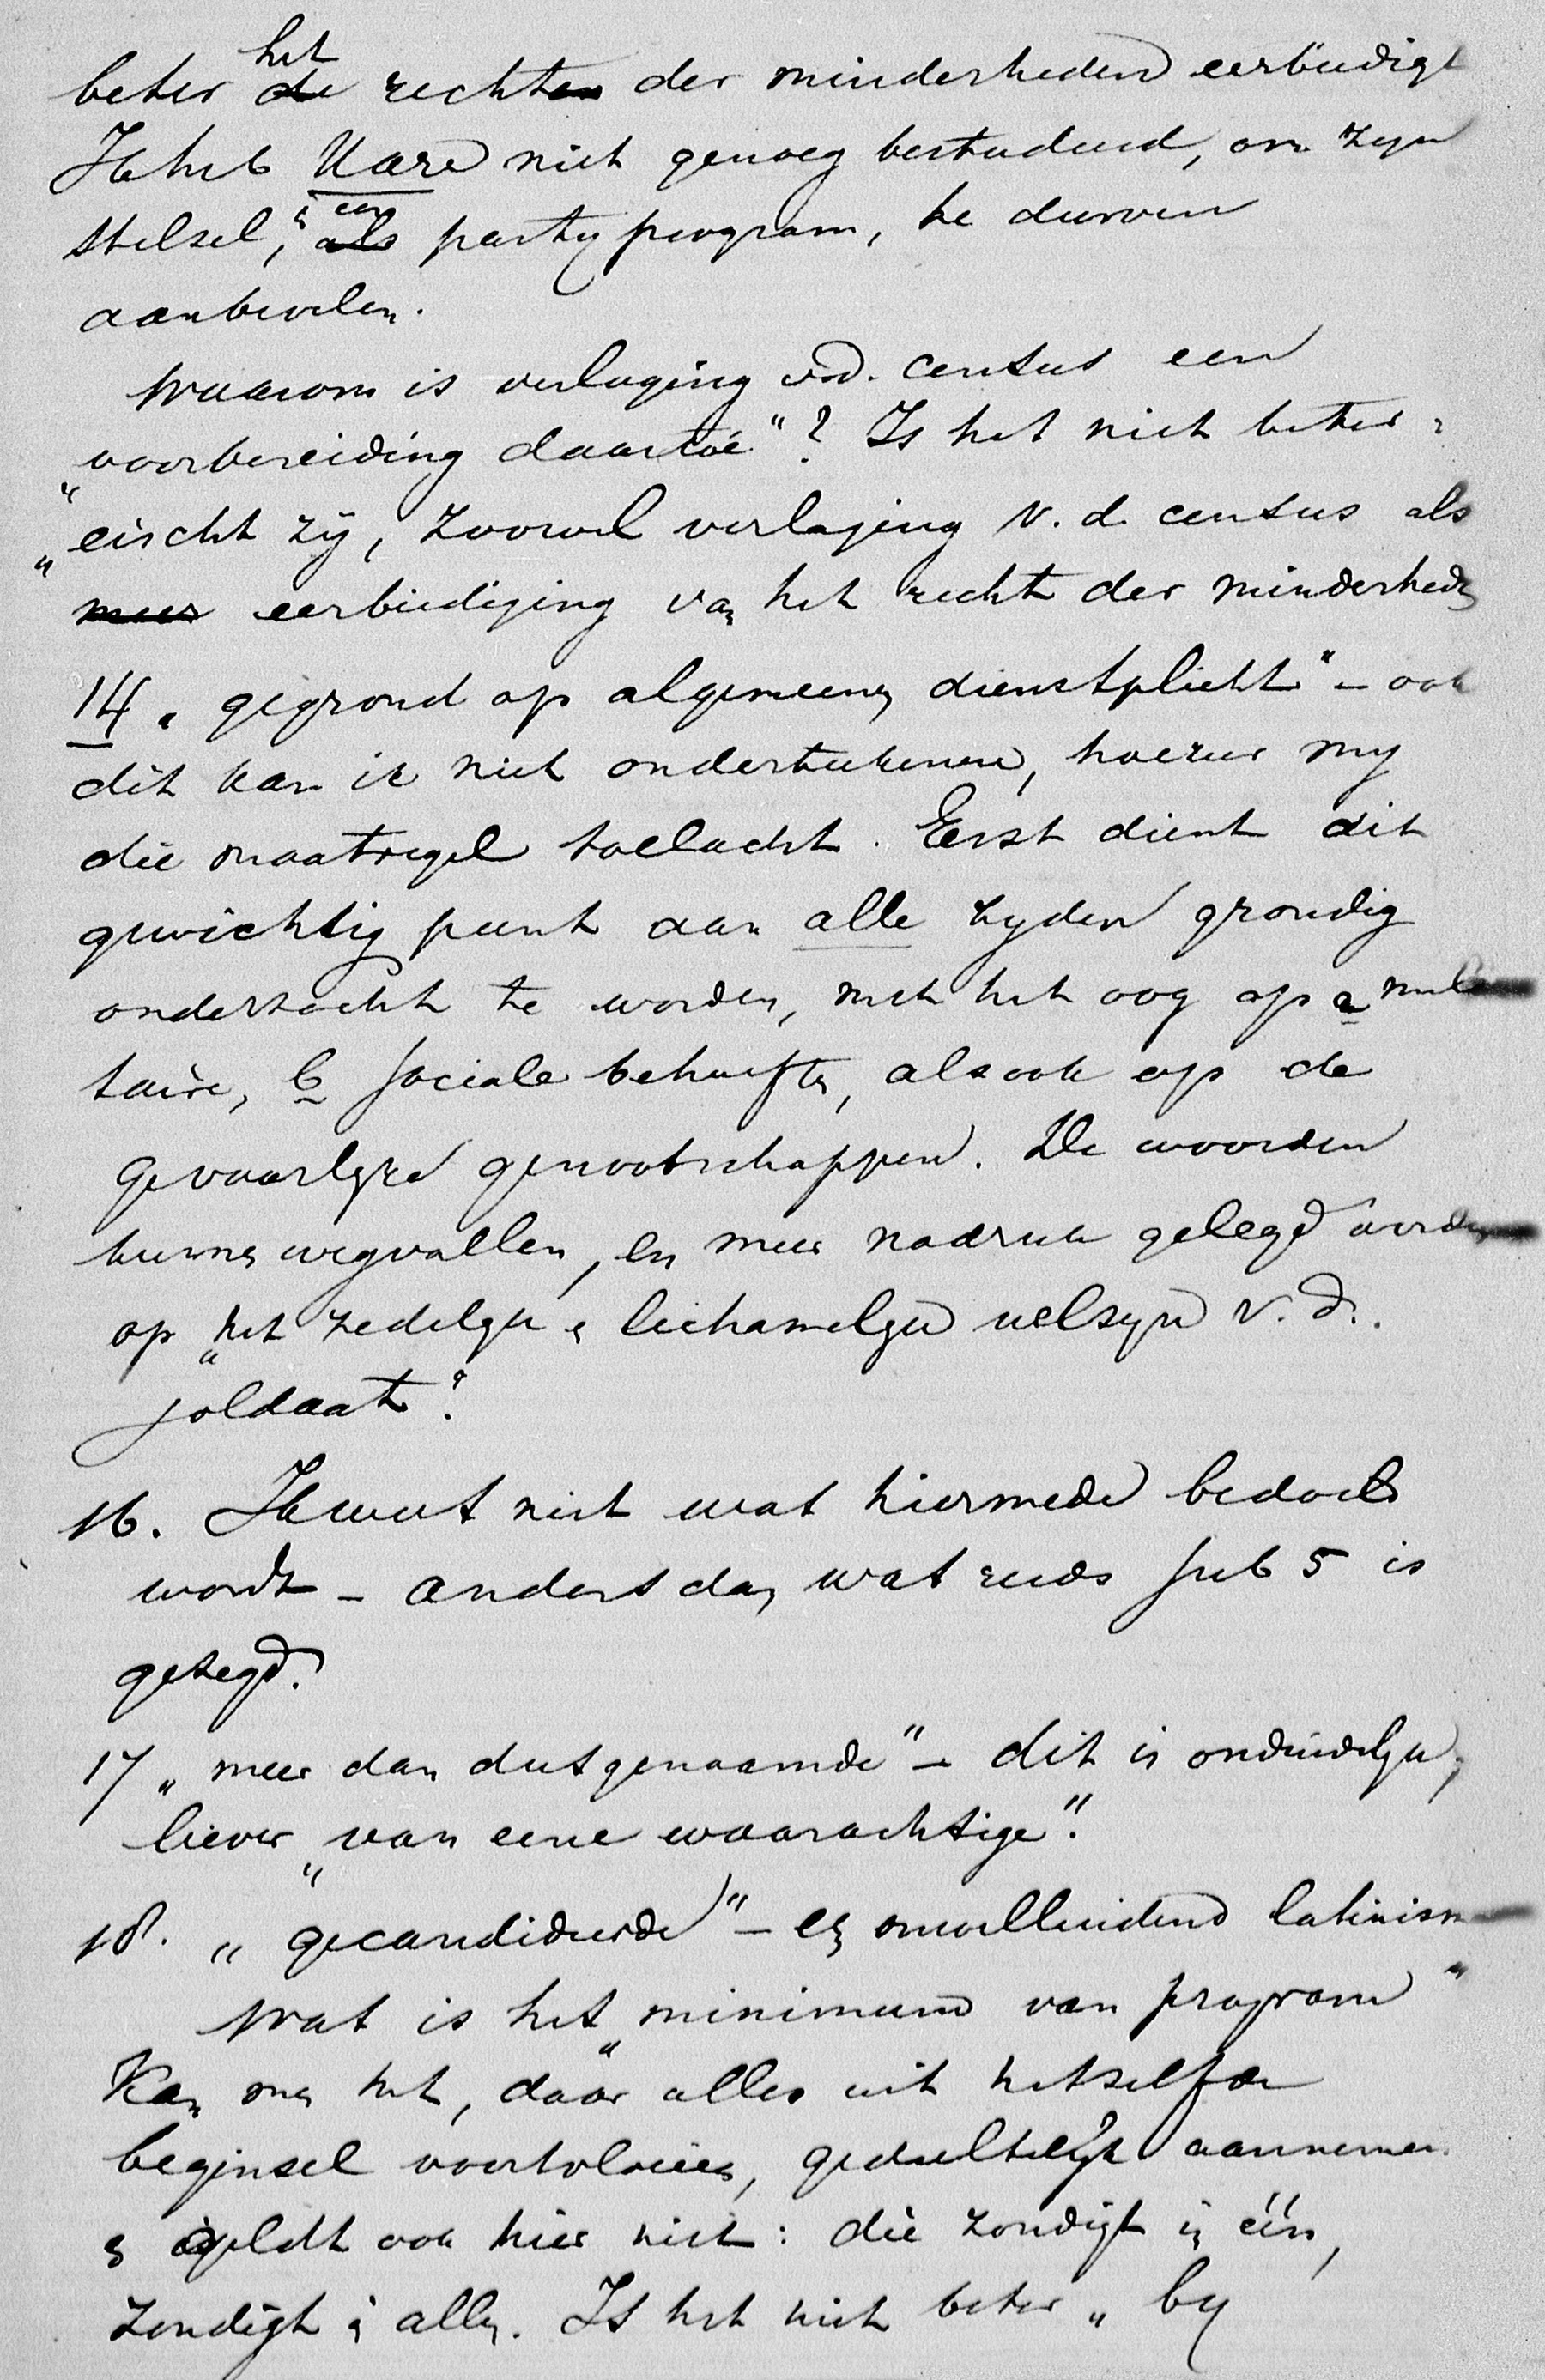 beter het recht der minderheden eerbiedigt
Ik heb Hare niet genoeg bestudeerd, om zyn
stelsel, in een party program, te durven
aanbevelen.
Waarom is verlaging v.d. census een
„voorbereiding daartoe"? Is het niet beter:
„eischt zij, zoowel verlaging v.d. census als
eerbiediging van het recht der minderheden
14 „gegrond op algemeene dienstplicht" – ook
dit kan ik niet onderteekenen, hoezeer my
die maatregel toelacht. Eerst dient dit
gewichtig punt aan alle zyden grondig
onderzocht te worden, met het oog op a mili
taire, b sociale behoeften, alsook op de
gevaarlyke genootschappen. De woorden
kunnen wegvallen, en meer nadruk gelegd worden
op „het zedelyk & lichamelyk welzyn v.d.
soldaat".
16. Ik weet niet wat hiermede bedoeld
wordt – anders dan wat reeds sub 5 is
gezegd.
17 „meer dan dusgenaamde" – dit is onduidelyk;
liever „van eene waarachtige".
18. „gecandideerde" – een onwelluidend latinisme
Wat is het „minimum van program"
Kan men het, daar alles uit hetzelfde
beginsel voortvloeien, gedeeltelijk aannemen
& geldt ook hier niet: die zondigt in één,
zondigt in allen. Is het niet beter „by